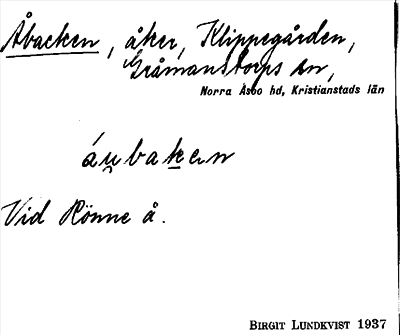 Åbacken, åker, Klippegården,
Gråmanstorps sn,
Norra Åsbo hd, Kristianstads län
áu̯bakɛn
Vid Rönne å.
BIRGIT LUNDKVIST 1937